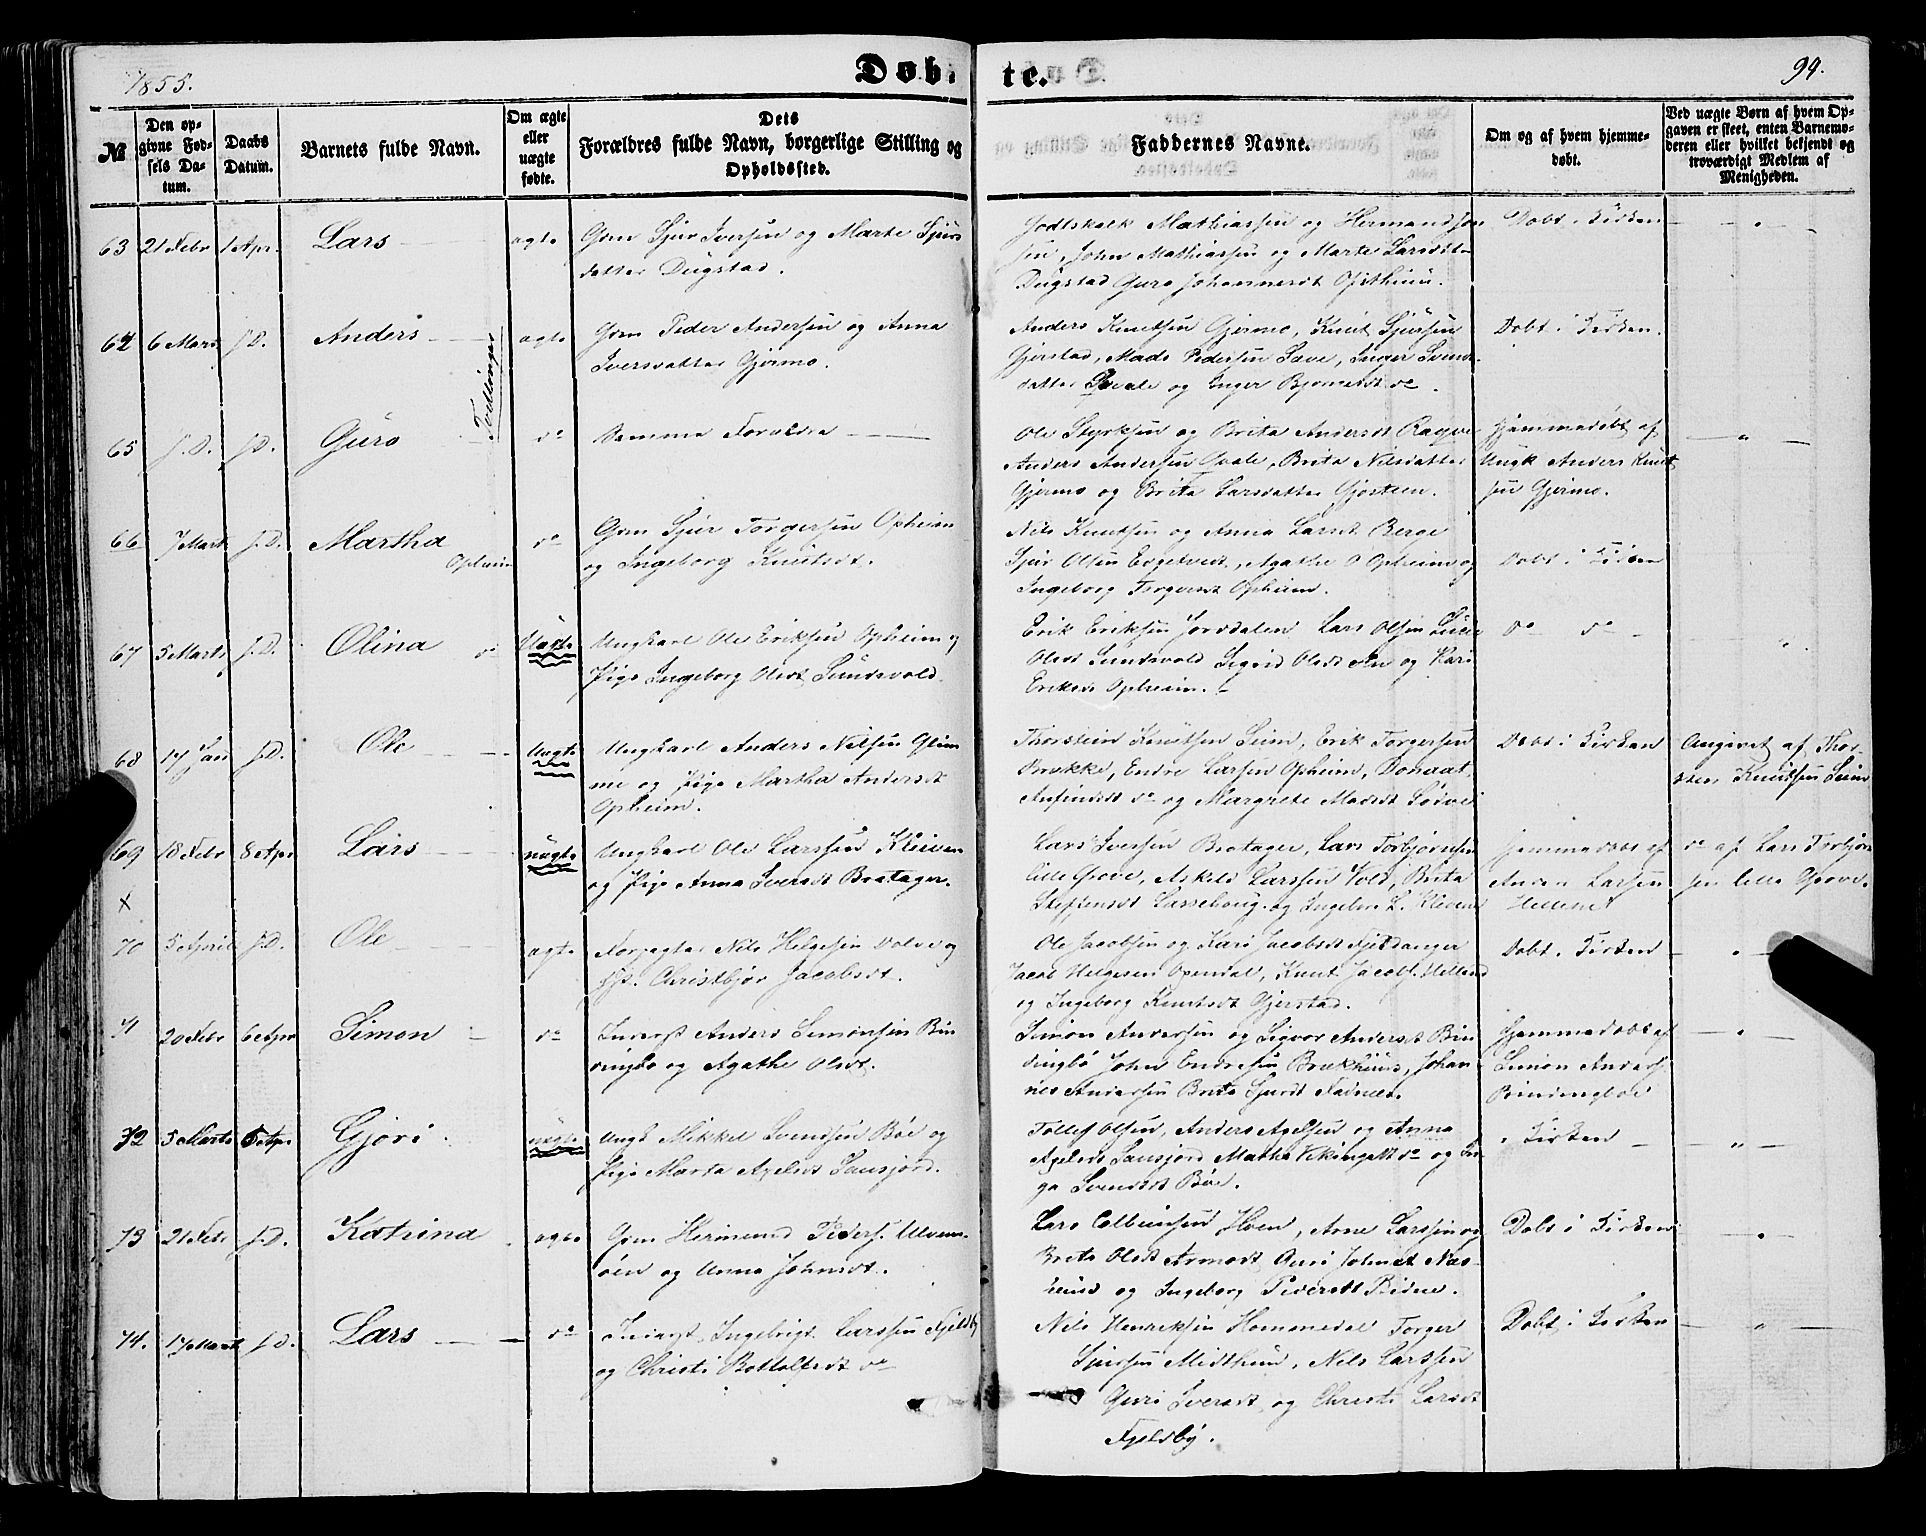 1855.
Døb- te.
99.
№
Den opgivne Fødsels Datum.
Daabs Datum.
Barnets fulde Navn.
Om ægte eller uægte fødte.
Dets Forældres fulde Navn, borgerlige Stilling og Opholdssted.
Faddernes Navne.
Om og af hvem hjemmedøbt.
Ved uægte Børn af hvem Opgaven er skeet, enten Barnemoderen eller hvilket bekjendt og troværdigt Medlem af Menigheden.
63 21 Febr 1 Apr. Lars ægte
Grm Sjur Iversen og Marte Sjurs
datter Dugstad.
Godtskalk Mathiassen og Hermand Jon
sen, John Mathiassen og Marte Larsdtte
Dugstad Guro Johannesdt Opitheim.
Døbt i Kirken
64 6 Marts s.D. Anders ægte
Tvillinger
Grm Peder Andersen og Anna
Iversdatter Gjermo.
Anders Knutsen Gjermo, Knut Sjursen
Gjerstad, Mads Pedersen Sæve, Inger Svends
datter Qvale og Inger Bjørnesdt do.
Døbt i Kirken.
65 s.D. s.D. Guro do
Samme Forældre
Ole Styrksen og Brita Andersdt Rogne
Anders Andersen Qvale, Brita Nilsdatter
Gjermo og Brita Larsdatter Gjøstein.
Hjemmedøbt af
Ungk Anders Knut
sen Gjermo.
66 7 Marts s.D. Martha Opheim do
Grm Sjur Torgersen Opheim
og Ingeborg Knutsdt.
Nils Knutsen og Anna Larsdt Berge
Sjur Olsen Engelsvedt, Agathe O Opheim og
Ingeborg Torgersdt Opheim.
Døbt i Kirken
67 5 Marts s.D. Olina do Uægte
Ungkarl Ole Eriksen Opheim og
Pige Ingeborg Olsdt Sundsvold.
Erik Eriksen Jordalen Lars Olsen
Olsdt Sundsvold Sigrid Olsdt og Kari
Eriksdt Opheim.
do do
68 17 Jan s.D. Ole Uægte
Ungkarl Anders Nilsen Glim
me og Pige Martha Andersdt
Opheim.
Thorstein Knutsen Seim, Erik Torgersen
Brække, Endre Larsen Opheim,
Anfindsdt do og Margrete Madsdt Sørve
Døbt i Kirken
Angivet af Thor-
sten Knudsen Seim
69 18 Febr 8 Apr Lars uægte
x
Ungkarl Ole Larssen Kleiven
og Pige Anna Iversdt Bratager.
Lars Iversen Bratager, Lars Torbjørnsen
Lille Grove, Askild Larssen Vold, Brita
Steffensdt Larsehoug og Ingebor L. Kleiven
Hjemmedøbt af
Anders Larsen
Hellenet
do af Lars Torbjørn
sen Lille Grove.
70 5 Aprils s.D. Ole ægte
Forpagter Nils Helgesen Dolve og
Hst. Christbjør Jacobsdt.
Ole Jacobsen og Kari Jacobsdt Fjeldanger
Jacob Helgesen Opendal, Knut Jacobs. Helland
og Ingeborg Knutsdt Gjerstad.
Døbt i Kirken
71 20 Febr 6 Apr Simon do
Inderst Anders Simonsen Bin
dingbø og Agathe Olsdt.
Simon Andersen og Sigvor Andersdt Bin
dingbø John Endresen Brækhuus, Johan
nes Andersen Brita Sjursdt Fadnes.
Hjemmedøbt af
Simon Anders
Bindingbøe
72 5 Marts 6 Apr Gjøri uægte
Ungk Mikkel Svendsen Bøe og
Pige Marta Axelsdt Sausjord.
Tollef Olsen, Anders Axelsen og Anna
Axelsdt Sausjord Matha Vikingsdt do og In
ga Svendsdt Bøe.
i Kirken
73 21 Febr s.D. Katrina ægte
Grm Hermund Peders. Ulvenu-
øien og Anna Johnsdt.
Lars Colbeinsen Hven, Arne Larssen og
Brita Olsdt Armodt, Guri Johnsdt Næs-
heim og Ingeborg Pedersdt Fidne.
Døbt i Kirken
74. 17 Marts s.D. Lars do
Inderst Ingebrigt Larssen Fjeldby
og Christi Bottolfsdt do
Nils Henriksen Hommedal Torger
Sjursen Midthun, Nils Larssen
Guri Iversdt og Christi Larsdt
Fjeldby.
Døbt i Kirken